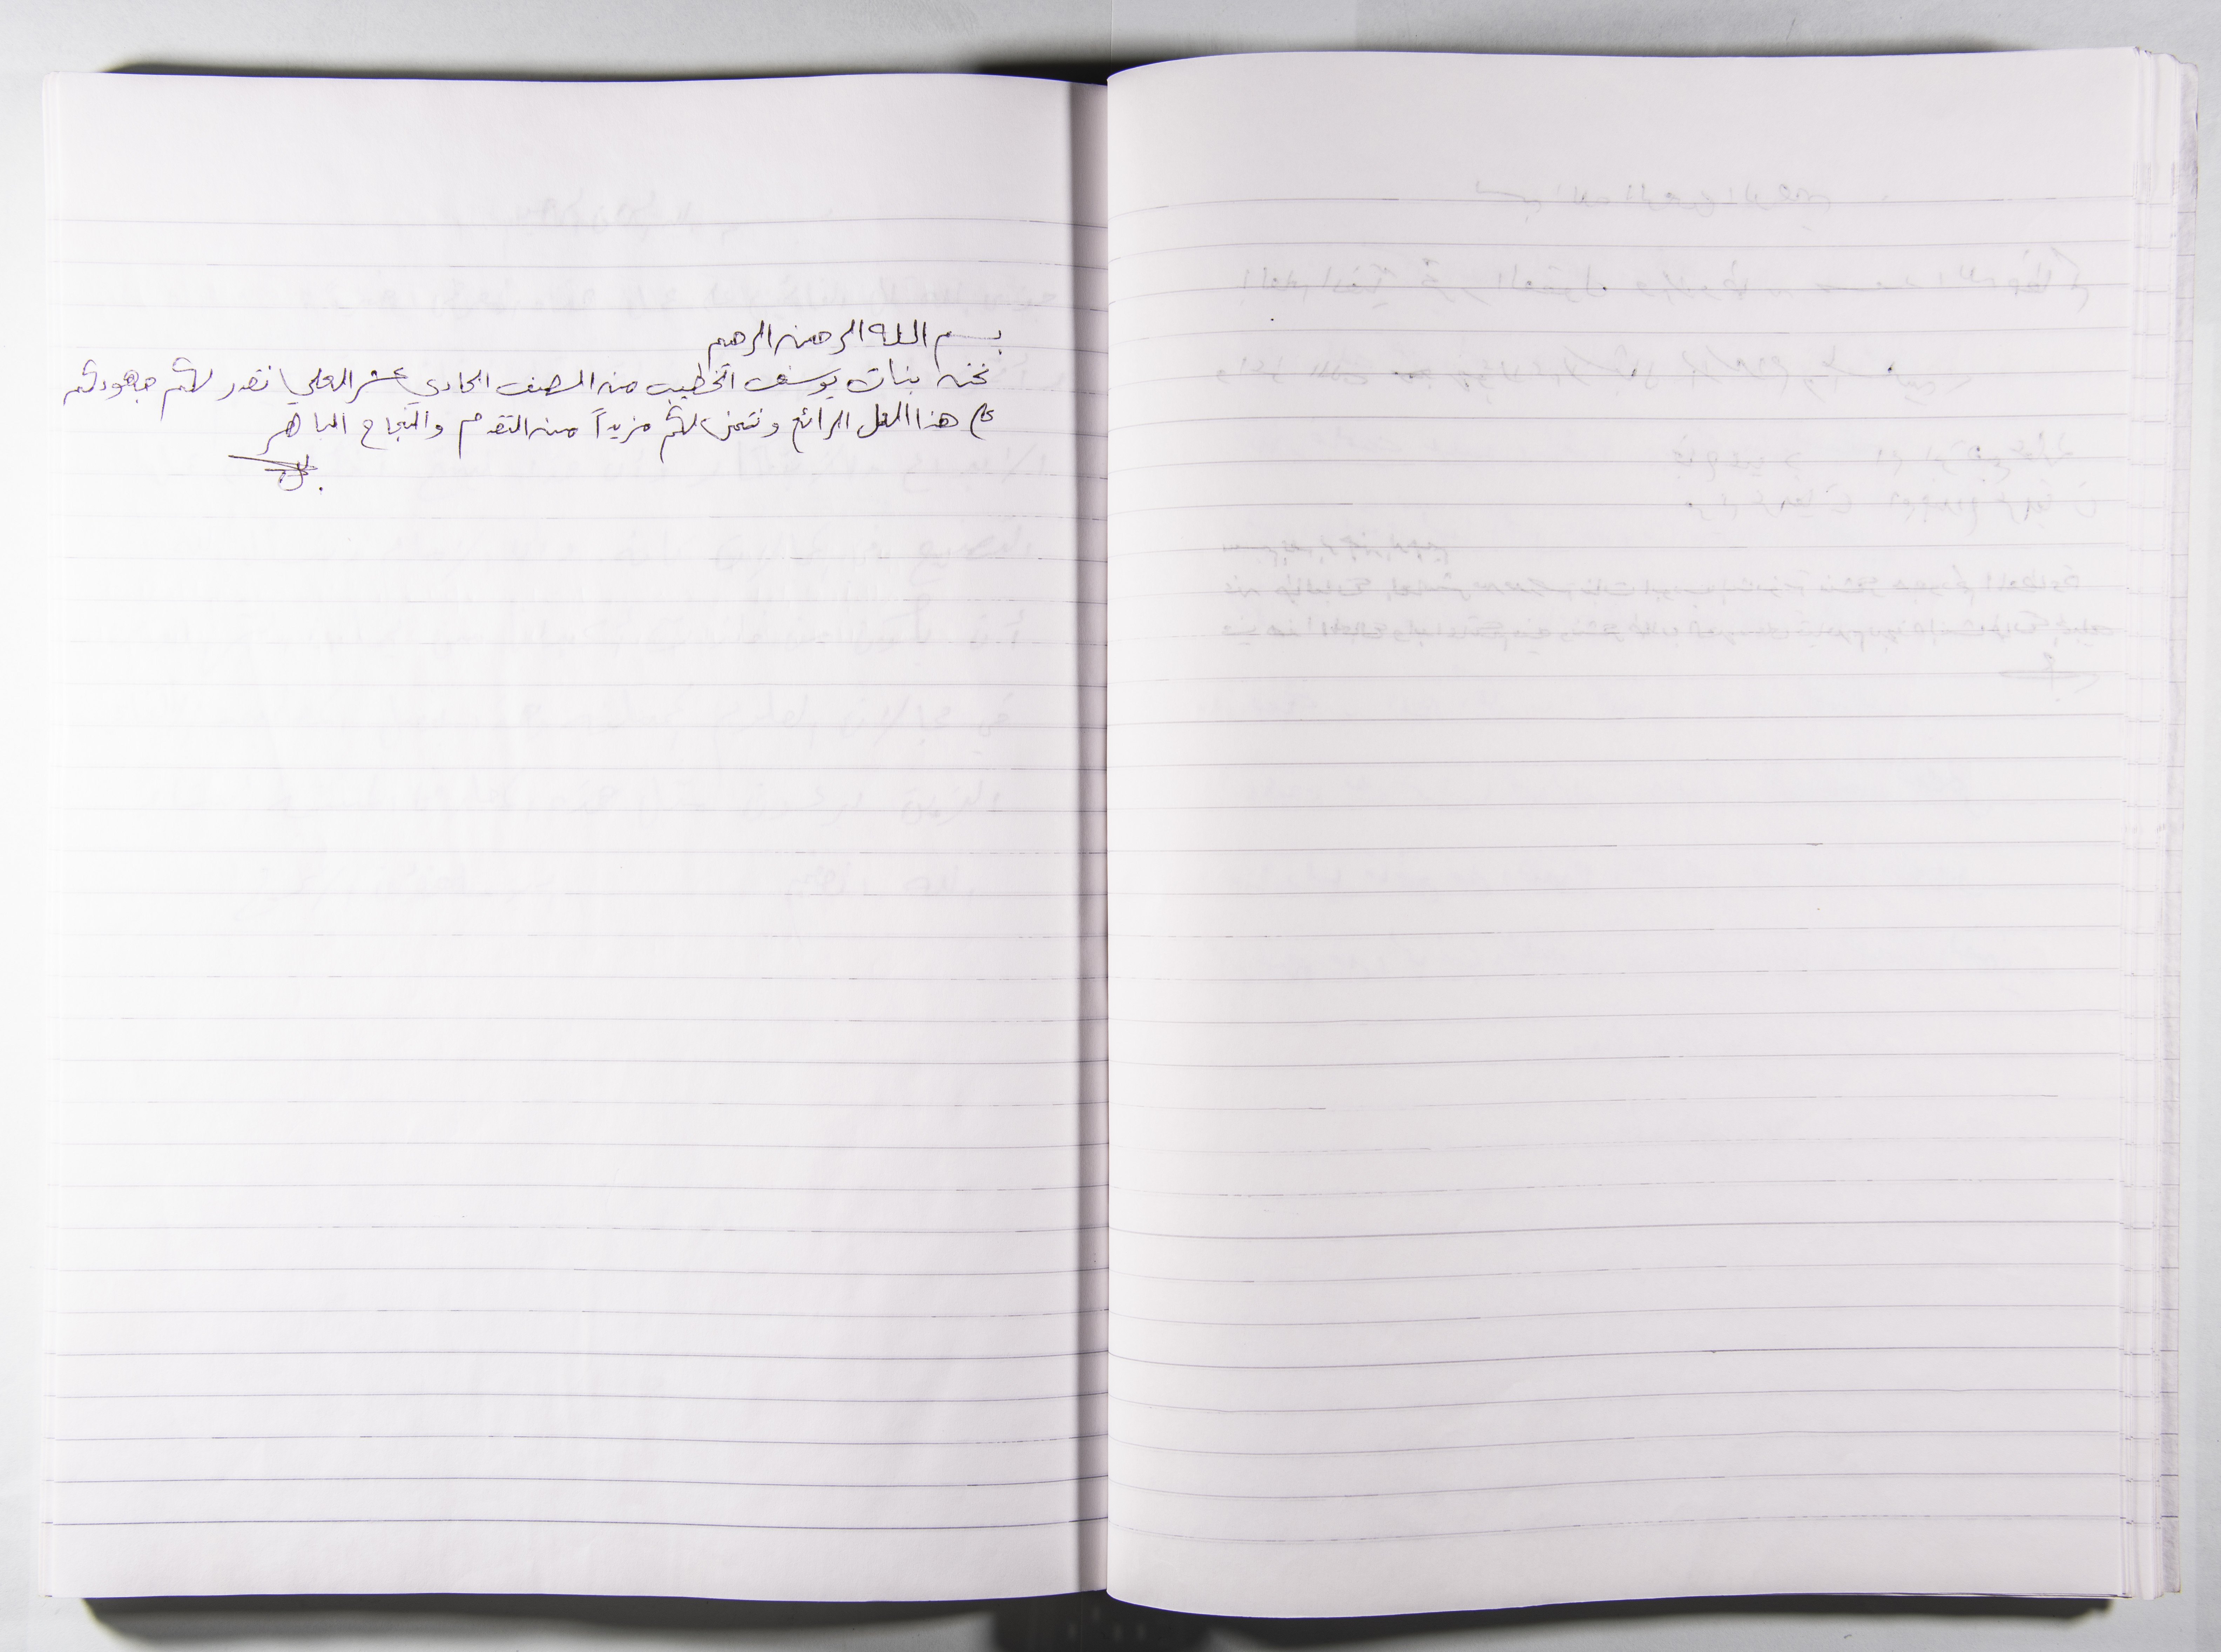 بسم الله الرحمن الرحيم
نحن بنات يوسف الخطيب من الصف الحادي عشر العلمي نقدر لكم جهودكم
على هذا العمل الرائع ونتمنى لكم مزيداً من التقدم والنجاح الباهر